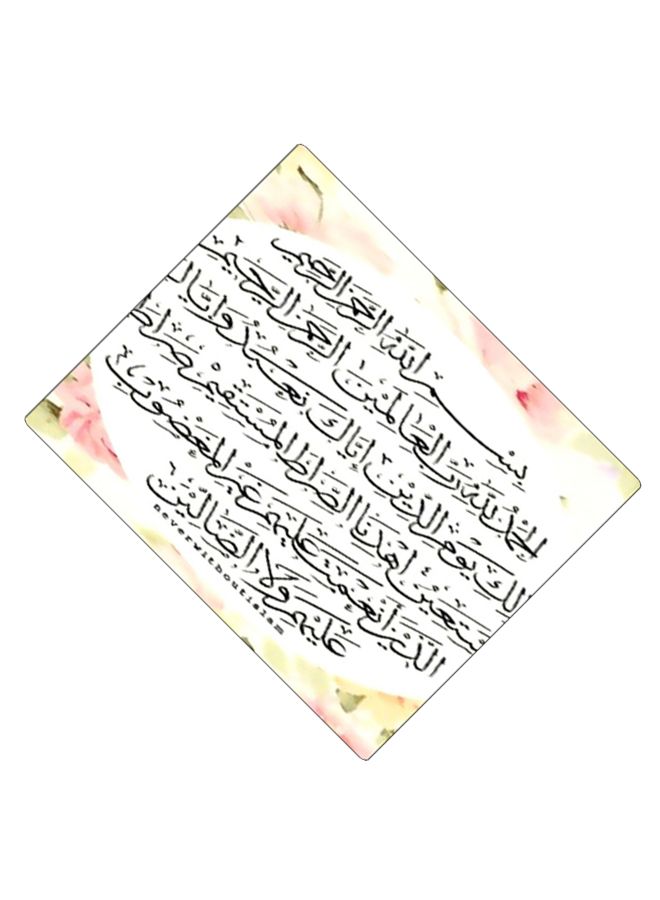 بِسْمِ اللهِ الرَّحْمٰنِ الرَّحِيمِ
الْحَمْدُ لِلّٰهِ رَبِّ الْعَالَمِيْنَ ١ الرَّحْمٰنِ الرَّحِيْمِ ٢
لِكِ يَوْمِ الدِّيْنِ ٣ إِيَّاكَ نَعْبُدُ وَإِيَّا
سْتَعِيْنُ ٤ اهْدِنَا الصِّرَاطَ الْمُسْتَقِيْمَ ٥ صِرَاطَ
الَّذِيْنَ أَنْعَمْتَ عَلَيْهِمْ غَيْرِ الْمَغْضُوْبِ
عَلَيْهِمْ وَلَا الضَّالِّيْنَ
neverwithoutislam